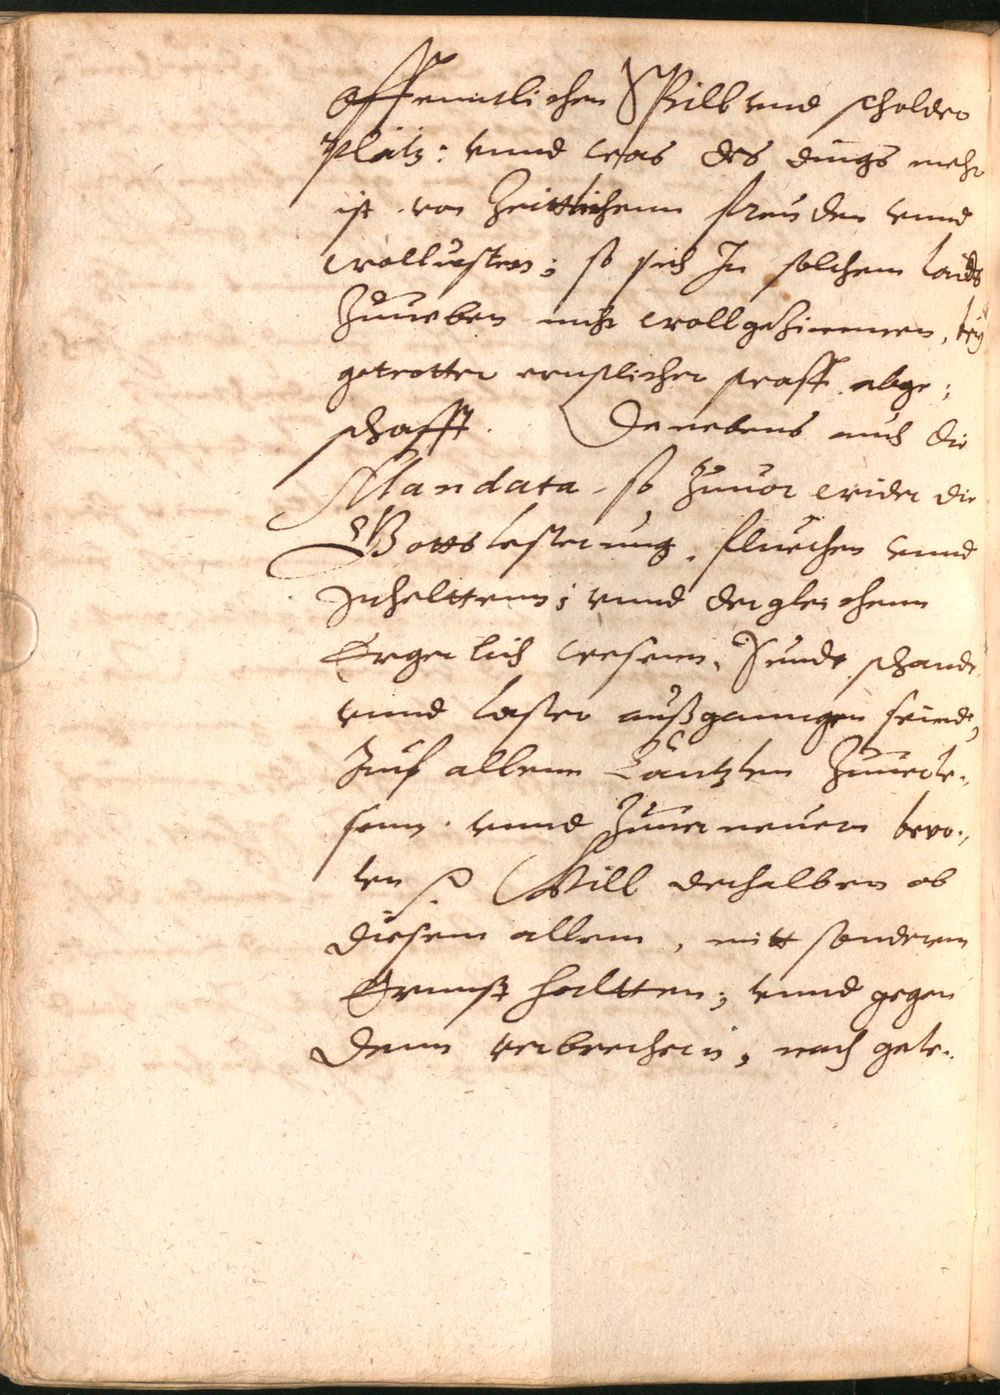 offenntlichen Spill vnnd scholder
Plätz: vnnd was des dings mehr
ist von Zeittlichenn freüden vnnd
wollüsten; so sich In solchem laids
Zuuĕben nicht woll geziemmen, bey
getrotter ernstlicher straff abge:
schafft. Danebens auch die
Mandata, so Zuuor wider die
Gottslesterung, fluechen vnnd
scheltten; vnnd dergleichenn
Ergerlich wesenn, Sünde, schande
vnnd laster außganngen seindt,
Auf allenn Cantzlen Zuuerle:
senn, vnnd Zuuerneuern beuo:
len. Will derhalben ob
diesem allem, mitt sonderm
Ernnst haltten; vnnd gegen
denn verbrechern, nach gele: